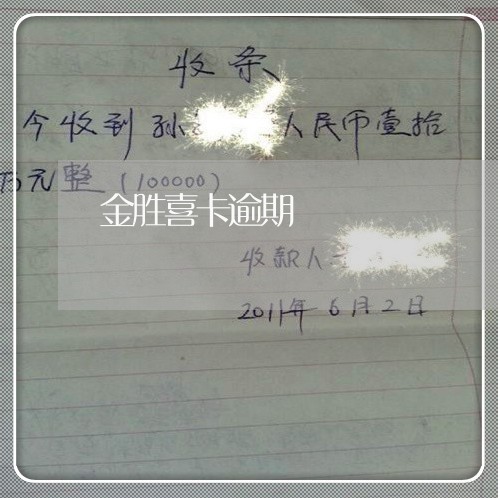 收条
今收到孙 人民币壹拾
万元整（100000）
金胜喜卡逾期
收款人
2011年6月2日